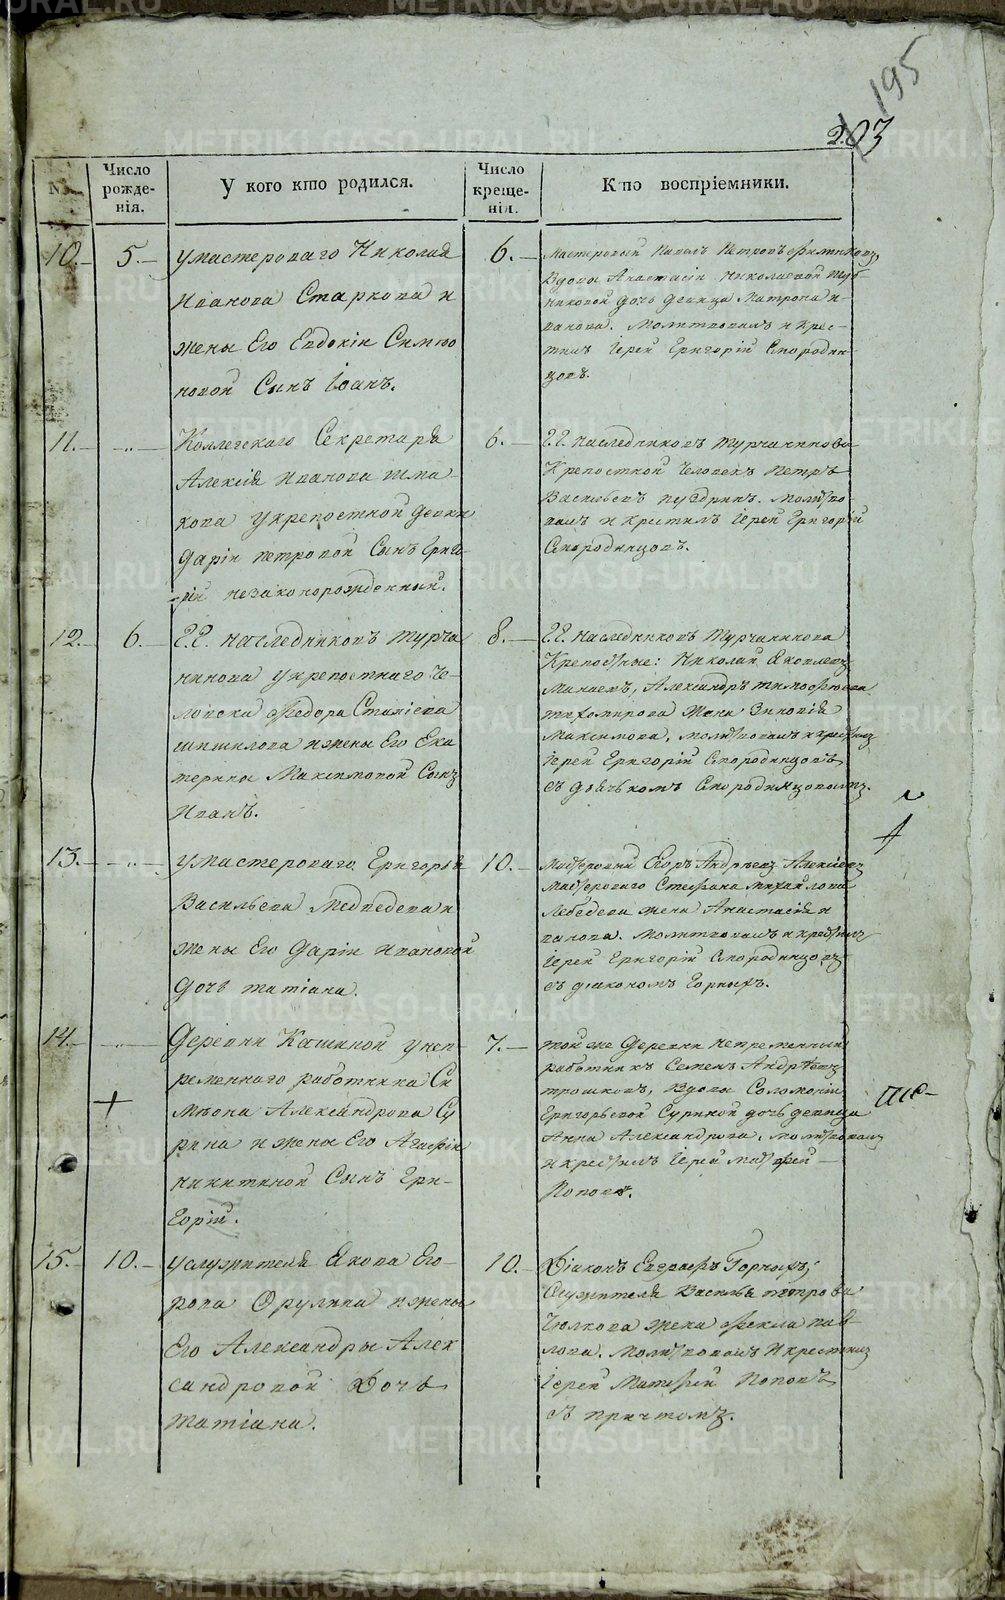 195
203
№.
Число рожде-нія.
У кого кто родился.
Число креще-нія.
Кто воспріемники.
10. 5.
у мастероваго Николая
Иванова Старкова и
жены Его Евдокіи Симео
новой Сынъ Іоанъ.
6.
Мастеровый Павелъ Петровъ
Вдовы Анастасіи Николаевой
никовой дочь девица Матрона и-
ванова. Молитвовалъ и крес-
тилъ Іерей Григорій Смородин-
цовъ.
11. -„-
Коллежскаго Секретаря
Алексія Иванова Шма-
кова у крепостной девки
Даріи Петровой Сынъ Григо-
рій незаконорожденный.
6.
Г.Г. наследниковъ Турчанинова
Крепостной Человекъ Петръ
Васильевъ. Молитво-
валъ и крестилъ Іерей Григорій
Смородинцовъ.
12. 6.
Г.Г. наследниковъ Турча
нинова у крепостнаго Че-
ловека Федора
Шишилова и жены Его Ека
терины Максимовой Сынъ
Иванъ.
8.
Г.Г. наследниковъ Турчанинова
Крепостные: Николай Яковлевъ
Александръ Тимофеева
Тихомирова Жена Зиновія
Максимова, молитвовалъ и крестилъ
Іерей Григорій Смородинцовъ
съ дьячкомъ Смородинцовымъ.
13. -„-
у мастероваго Григорья
Васильева Медведева и
жены Его Даріи Ивановой
дочь Татіана.
10.
Мастеровый Егоръ Андреевъ Алексеевъ
Мастероваго Стефана Михайлова
Лебедева жена Анастасія и
ванова. Молитвовалъ и крестилъ
Іерей Григорій Смородинцовъ
съ діакономъ Горныхъ.
14. -„-
Деревни Кашиной у неп-
ременнаго работника Си
меона Александрова Су
рина и жены Его Агафіи
Никитиной Сынъ Гри-
горій.
7.
той же Деревни непременный
работникъ Семенъ Андреевъ
Трошковъ, вдовы Соломоніи
Григорьевой Суриной дочь девица
Анна Александрова, молитвовалъ
и крестилъ Іерей Матфей
Поповъ.
15. 10.
у служителя Якова Его-
рова Орулина и жены
Его Александры Алек
сандровой Дочь
Татіана.
10.
Діаконъ Евграфъ Горныхъ;
Служителя Василья Петрова
Чюлкова жена Фекла пав
лова. Молитвовалъ И крестилъ
Іерей Матфей Поповъ
съ причтомъ.
METRIKI.GASO-URAL.RU